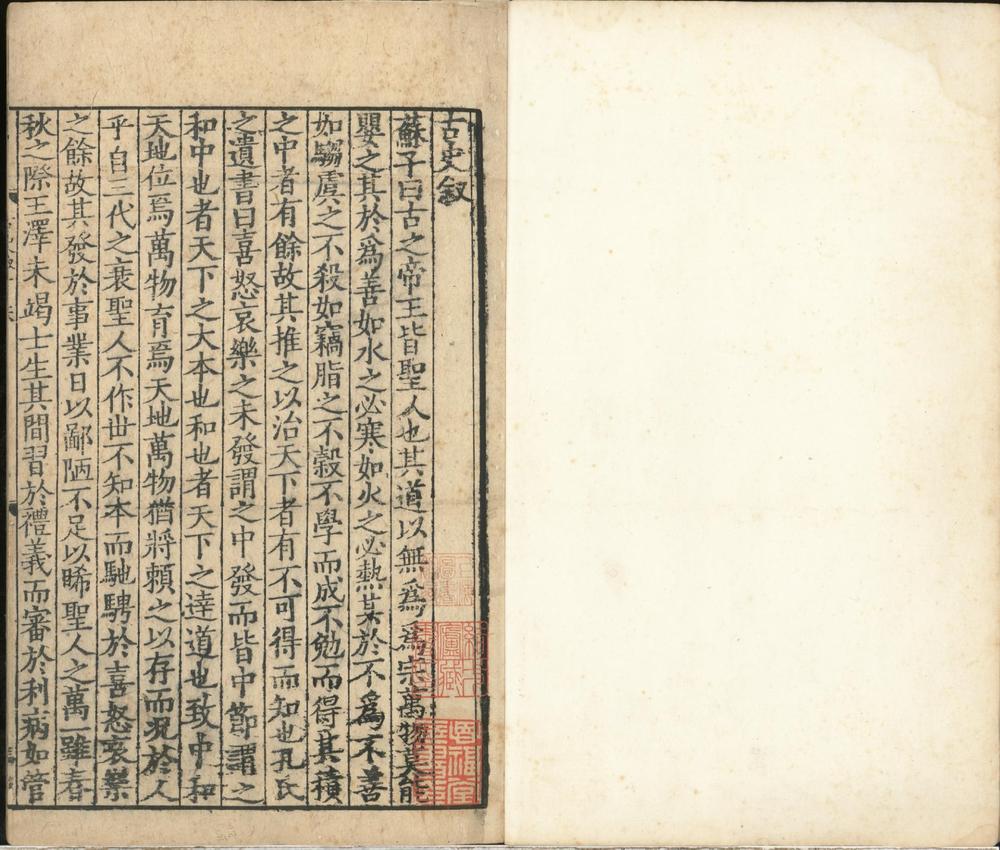 古史叙
蘇子曰古之帝王皆聖人也其道以無爲爲宗萬物莫能
嬰之其於爲善如水之必寒如火之必熱其於不爲不善
如騶虞之不殺如竊脂之不穀不學而成不勉而得其積
之中者有餘故其推之以治天下者有不可得而知也孔氏
之遺書曰喜怒哀樂之未發謂之中發而皆中節謂之
和中也者天下之大本也和也者天下之達道也致中和
天地位焉萬物育焉天地萬物猶將賴之以存而况於人
乎自三代之衰聖人不作世不知本而馳騁於喜怒哀樂
之餘故其發於事業日以鄙陋不足以睎聖人之萬一雖春
秋之際王澤未竭士生其間習於禮義而審於利病如管